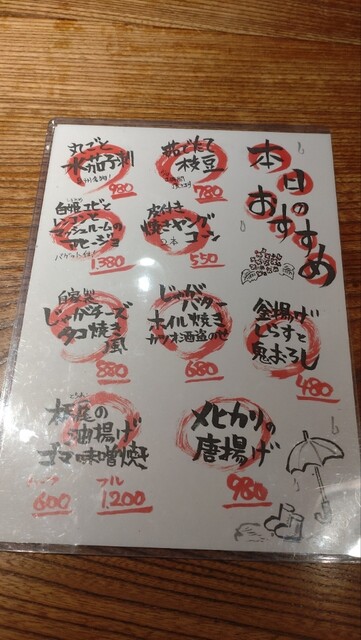 本日のおすすめ
茹でたて
枝豆
780
丸ごと
水茄子
980
皮付き
焼きヤングコーン
2本
550
白姫エビと
レンコンと
マッシュルームの
アヒージョ
バゲット付
1,380
釜揚げ
しらすと
鬼おろし
480
じゃがバター
ホイル焼き
カツオ酒盗のせ
680
自家製
じゃがチーズ
タコ焼き
風
880
メヒカリの
唐揚げ
980
栃尾の
油揚げ
ゴマ味噌焼き
ハーフ
600
フル
1,200